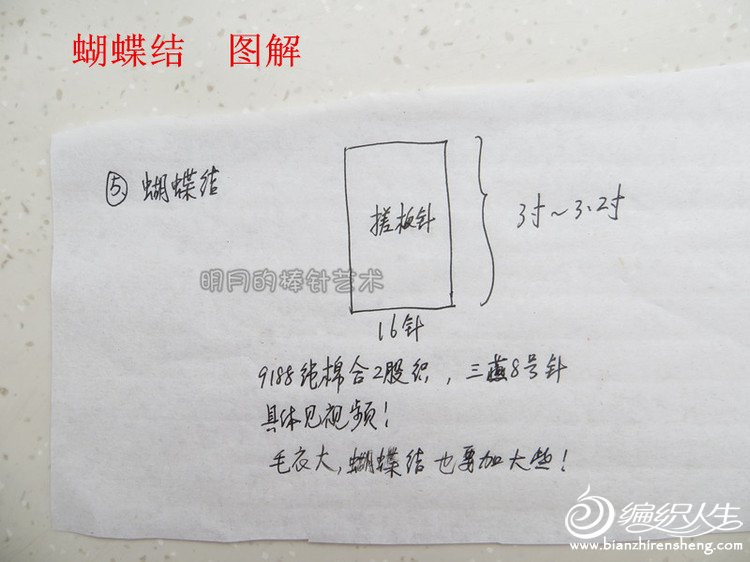 蝴蝶结 图解
⑤ 蝴蝶结
搓板针
3寸~3.2寸
明月的棒针艺术
16针
9188纯棉合2股织，三燕8号针
具体见视频！
毛衣大，蝴蝶结也要加大些！
编织人生
www.bianzhirensheng.com